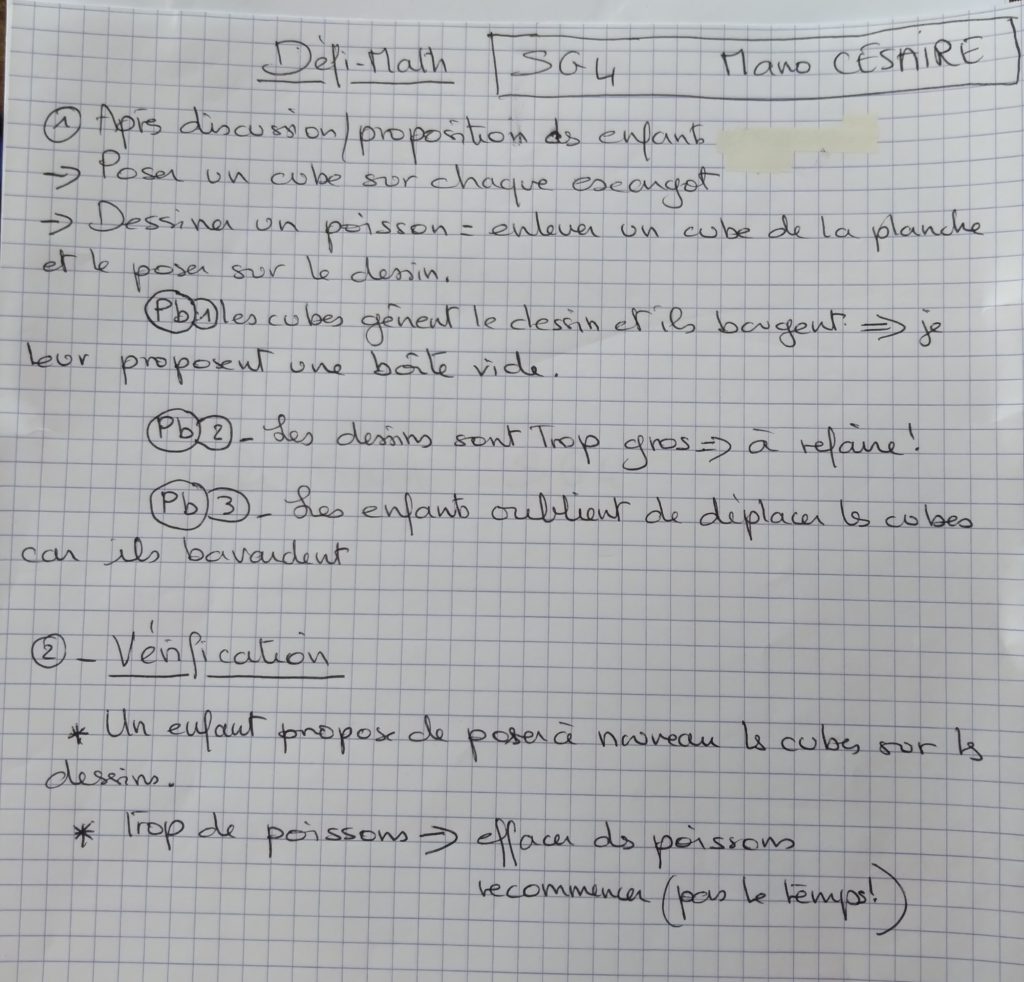 Défi-Math SG4 Mano CESAIRE
① Après discussion/proposition ds enfant
→ Poser un cube sur chaque escargot
→ Dessiner un poisson = enlever un cube de la planche
et le poser sur le dessin.
Pb ① les cubes gênent le dessin et ils bougent ⇒ je
leur proposent une boîte vide.
Pb ② - Les dessins sont Trop gros ⇒ à refaire!
Pb ③ - Les enfants oublient de déplacer ls cubes
car ils bavardent
② - Vérification
* Un enfant propose de poser à nouveau ls cubes sur ls
dessins.
* Trop de poissons ⇒ effacer ds poissons
recommencer (pas le temps!)